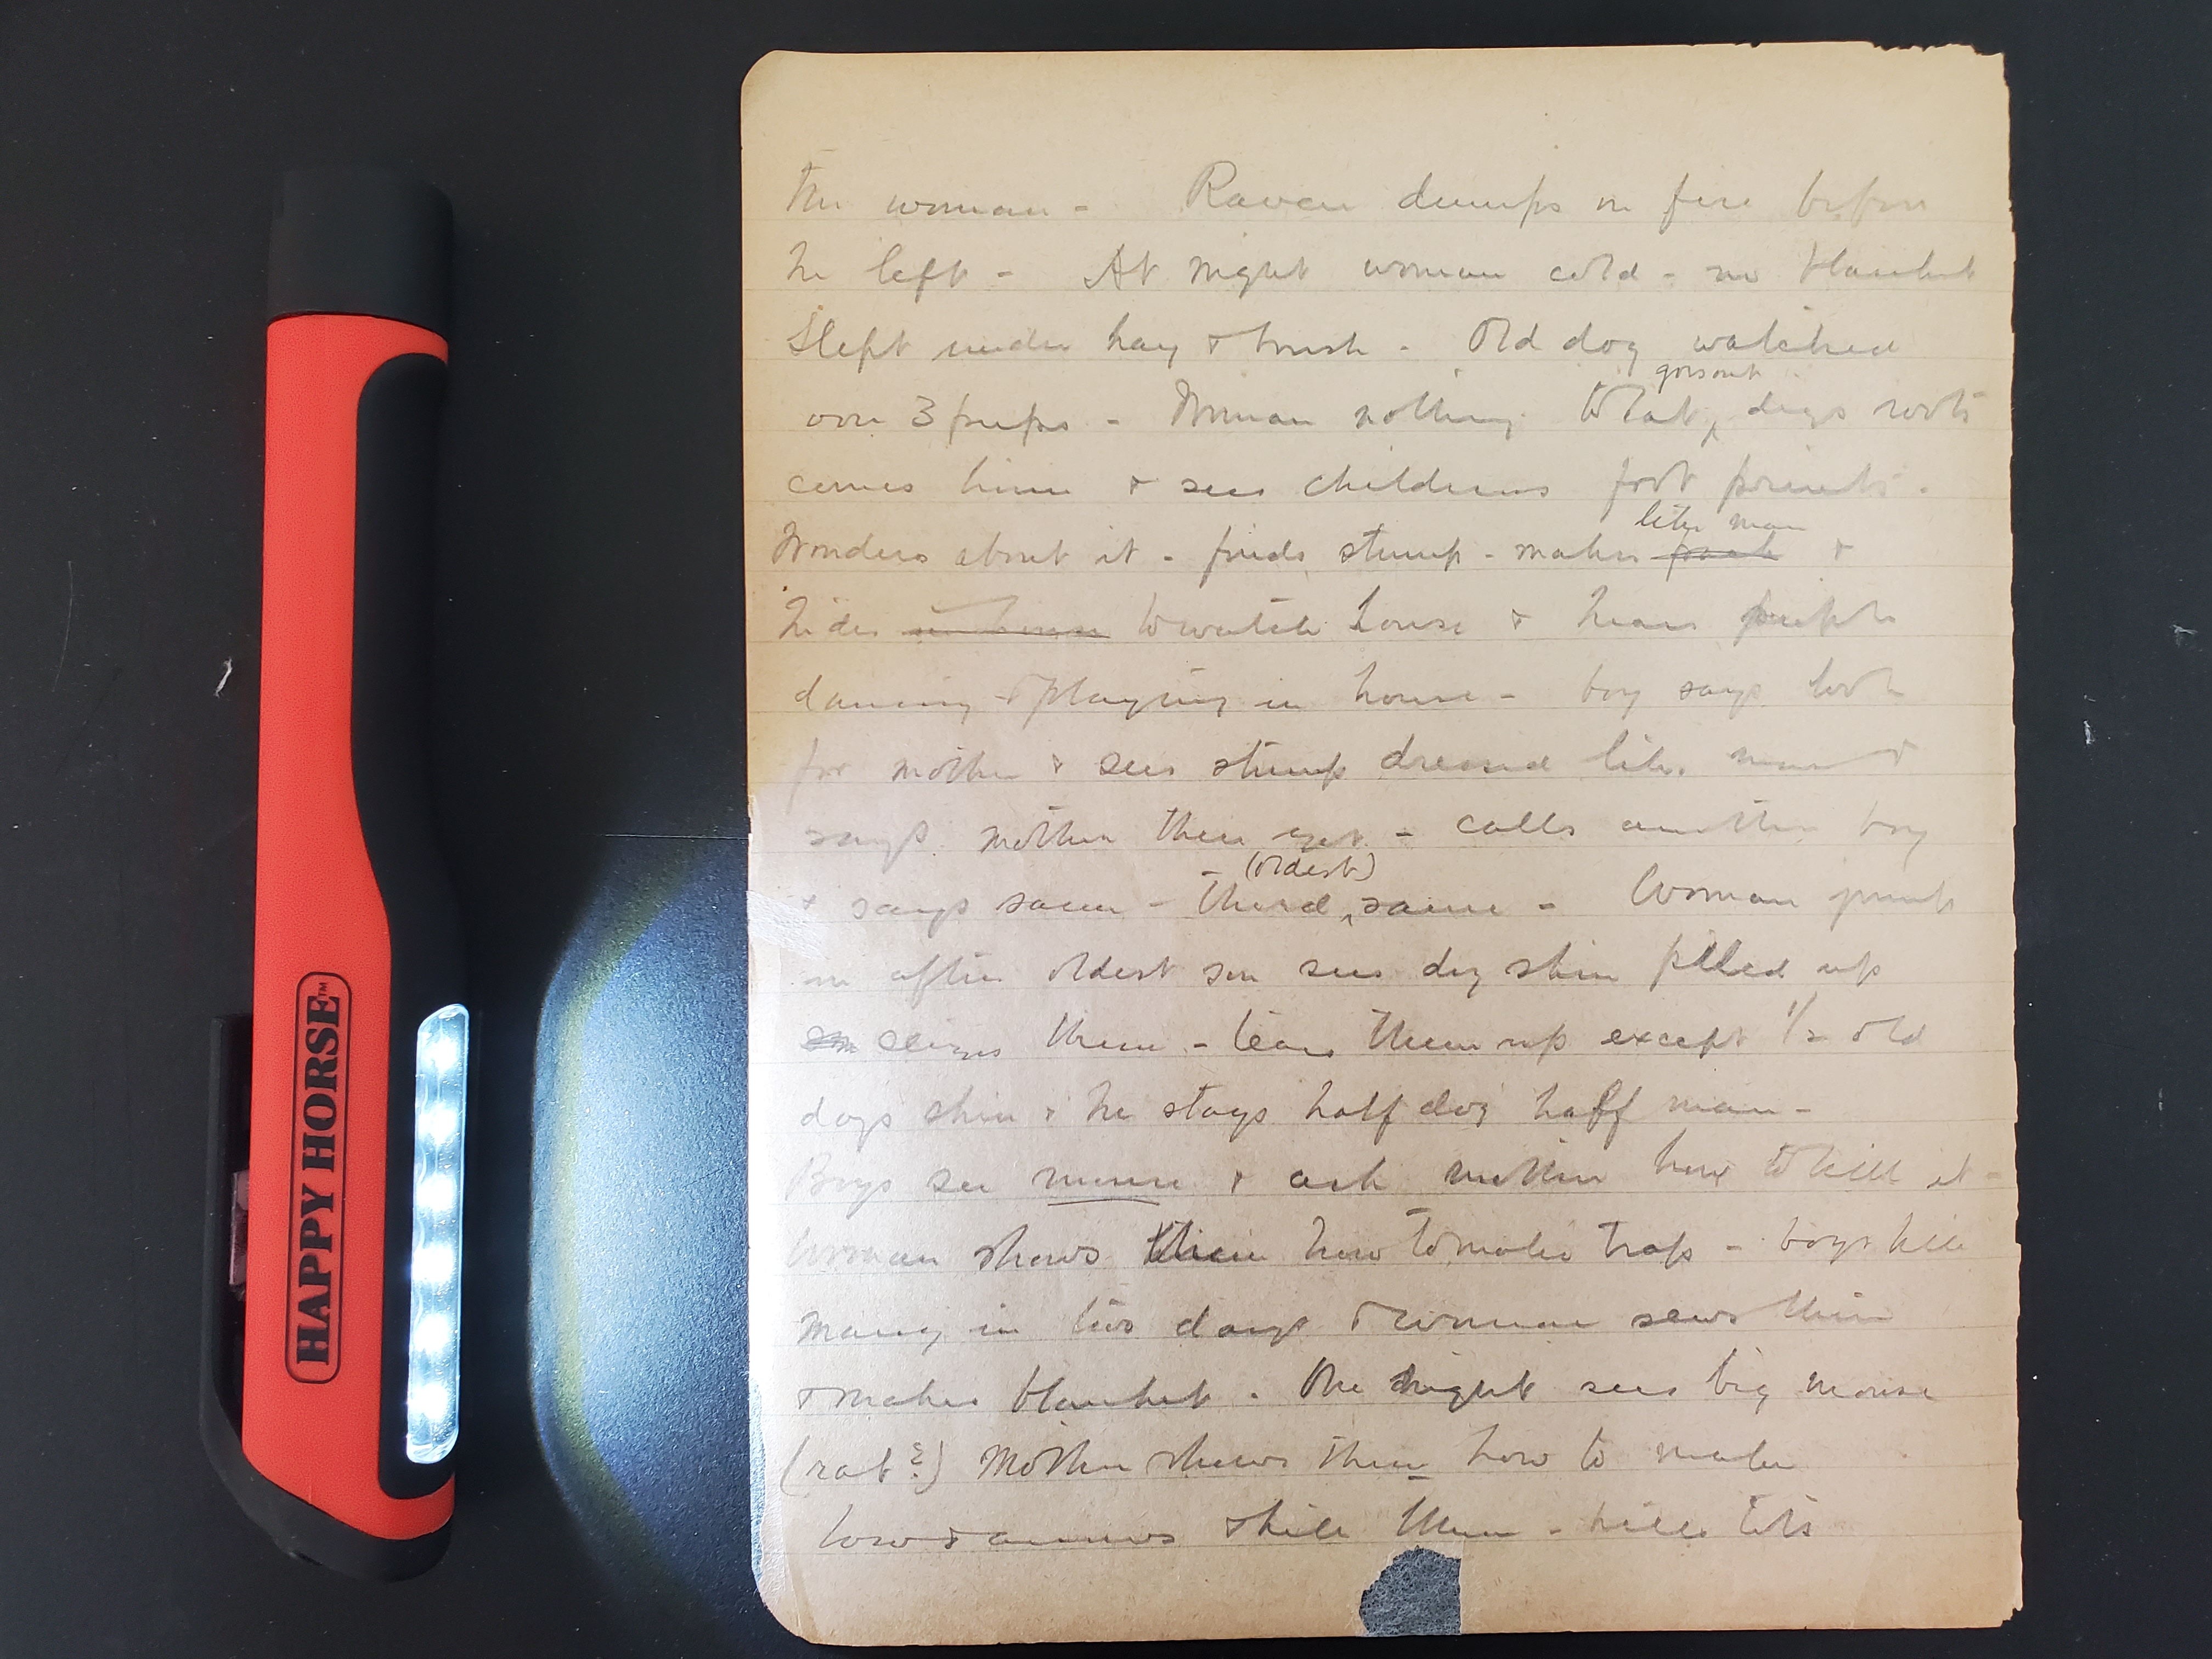 HAPPY HORSE™
The woman - Raven dumps on fire before
he left - At night woman cold - no blanket
Slept under hay & brush - Old dog watched
over 3 pups - Woman nothing to eat, goes out digs roots
comes home & sees childrens foot prints.
Wonders about it - finds stump - makes like man &
hides to watch house & hears people
dancing & playing in house - boy says look
for mother & sees stump dressed like man &
says mother there yet - calls another boy
& says same - third (oldest) same - Woman
in after oldest son sees dog skin piled up
seizes them - tears them up except 1/2 old
dogs skin & he stays half dog half man -
Boys see mouse & ask mother how to kill it -
Woman shows them how to make trap - boys kill
many in two days & woman sews them
& makes blanket. One night sees big mouse
(rat?) Mother shows them how to make
bow & arrows & kill them - kills lots